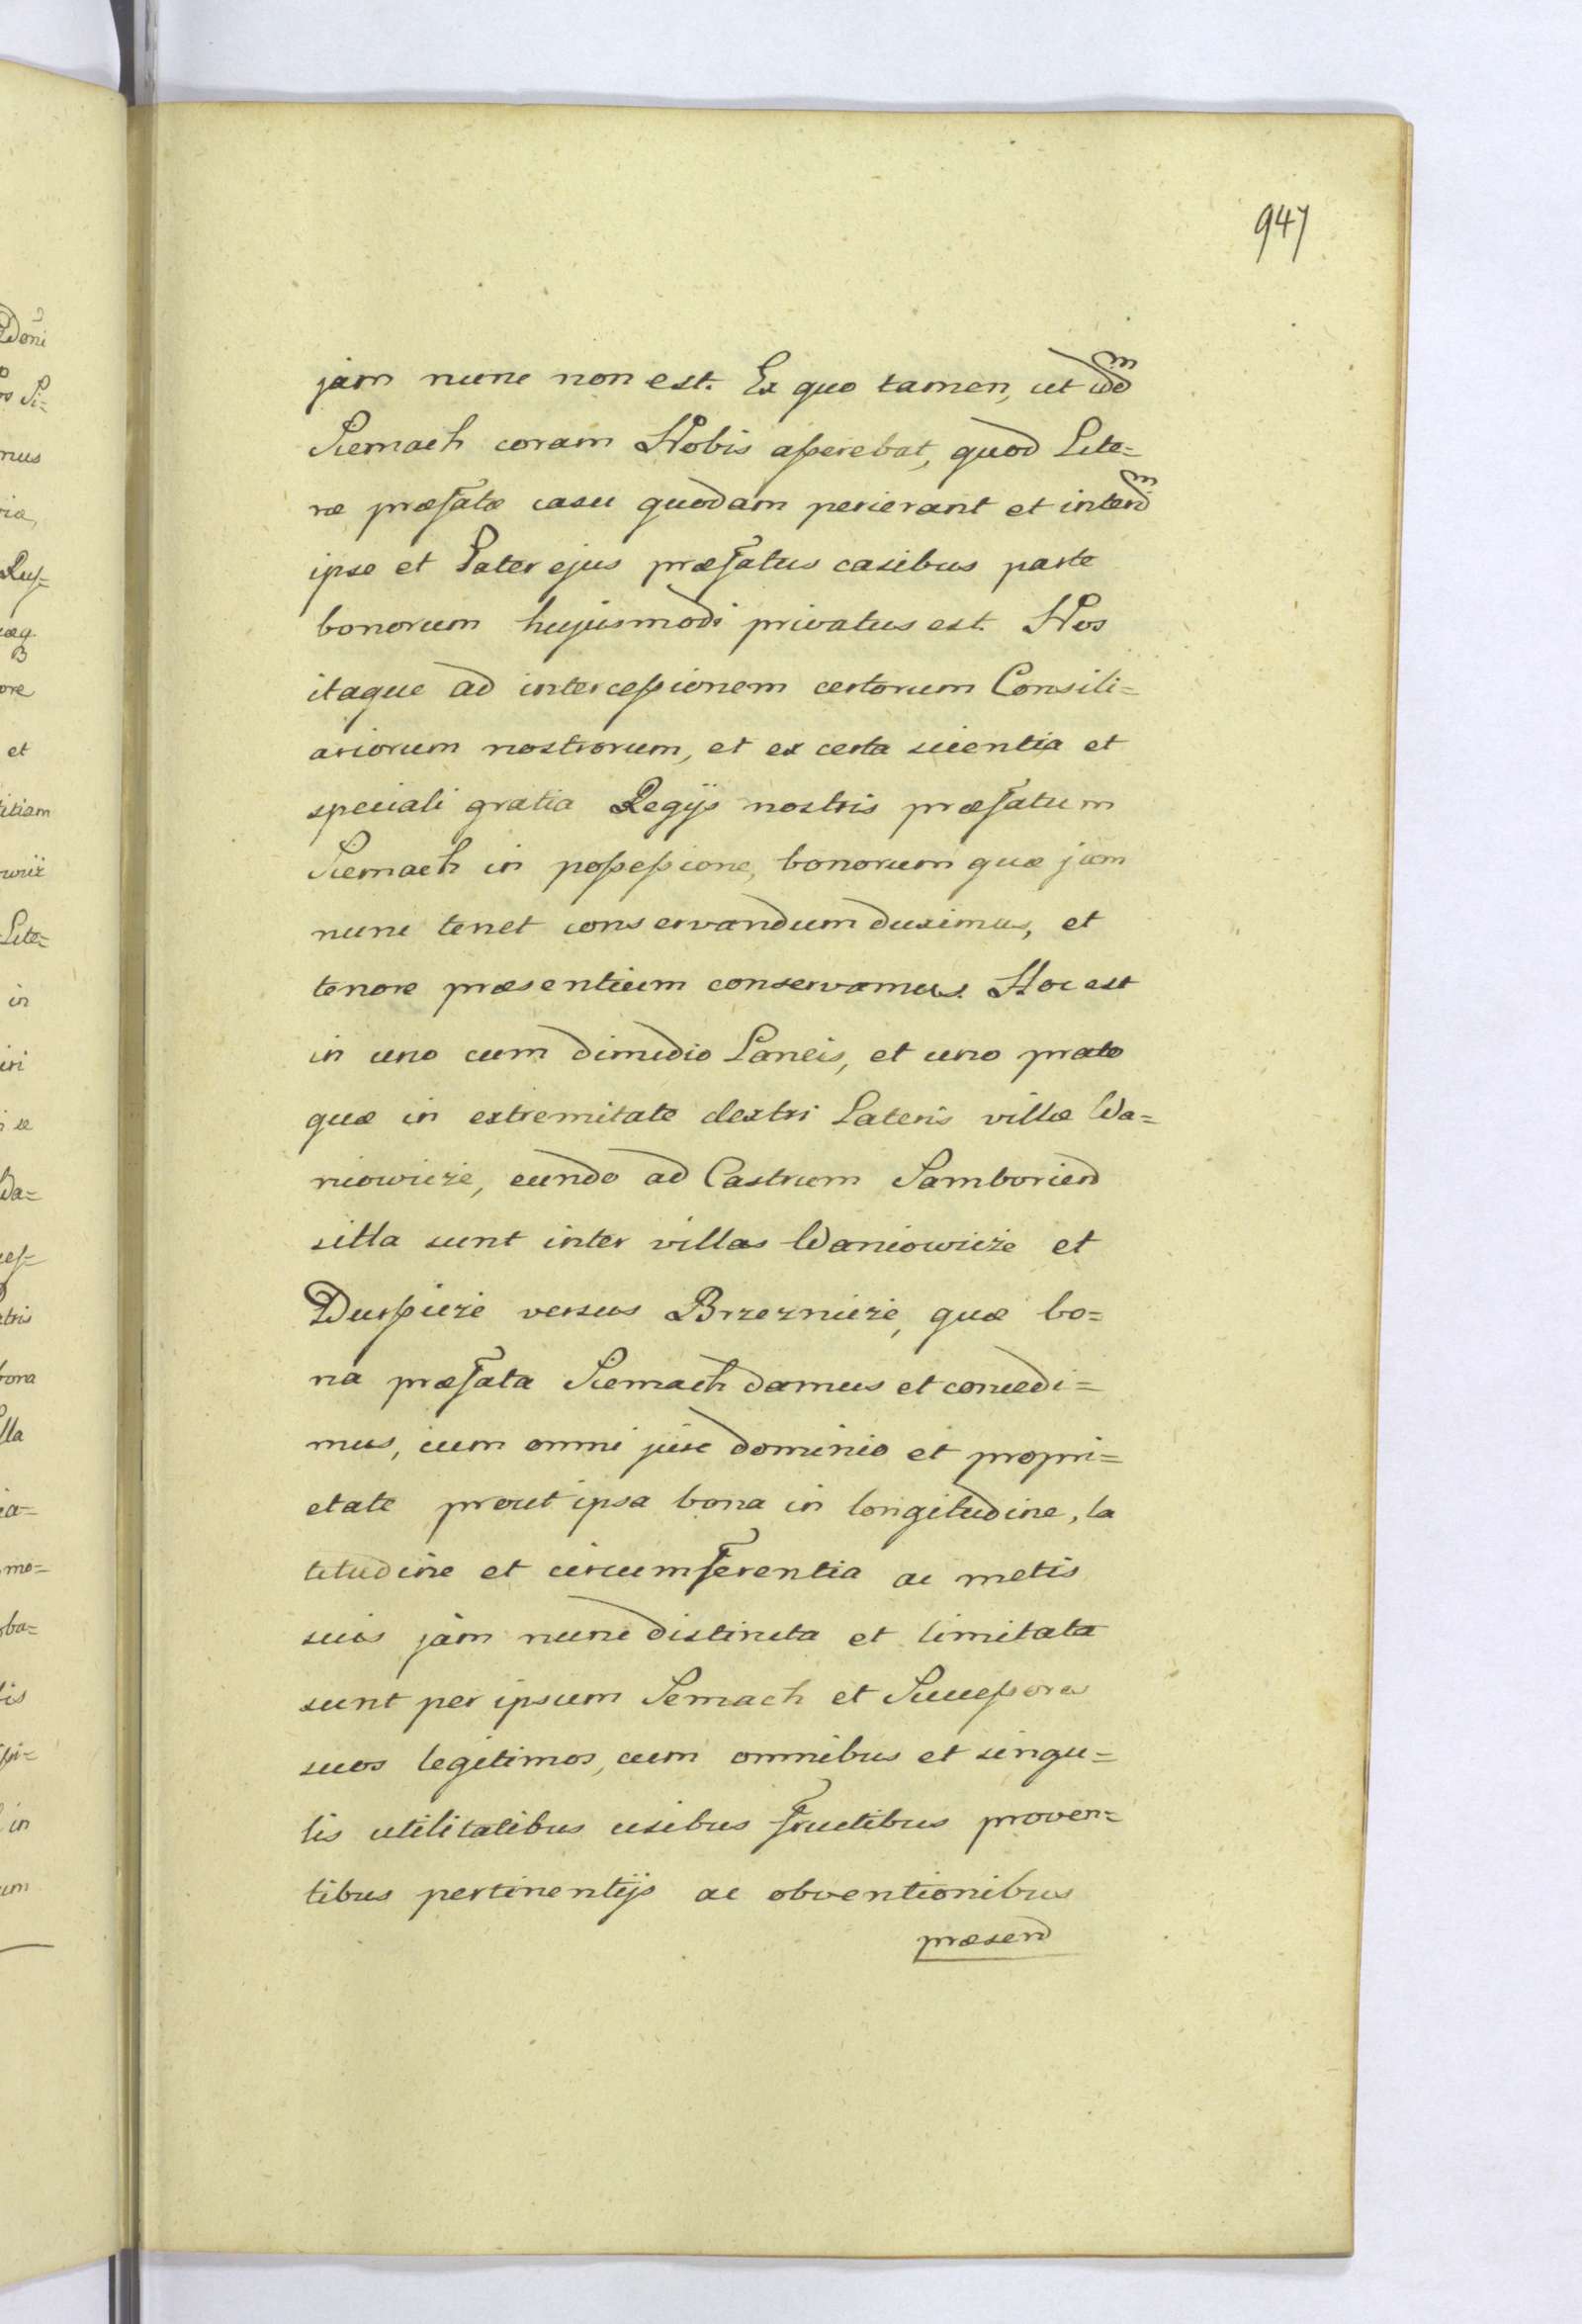 947
jam nunc non est. Ex quo tamen, ut idem
Siemach coram Nobis asserebat, quod Lite=
ræ præfatæ casu quodam perierant et interim
ipse et Pater ejus præfatus casibus parte
bonorum hujusmodi privatus est. Nos
itaque ad intercessionem certorum Consili=
ariorum nostrorum, et ex certa scientia et
speciali gratia Regijs nostris præfatum
Siemach in possessione, bonorum quæ jam
nunc tenet conservandum duximus, et
tenore præsentium conservamus. Hoc est
in uno cum dimidio Laneis, et uno prato
quæ in extremitate dextri Lateris villæ Wa=
niowicze, eundo ad Castrum Samborien
sitta sunt inter villas Waniowicze et
Dussicze versus Brzeznicze, quæ bo=
na præfata Siemach damus et concedi=
mus, cum omni jure dominio et propri=
etate prout ipsa bona in longitudine, la
titudine et circumferentia ac metis
suis jam nunc distincta et limitata
sunt per ipsum Semach et Successores
suos legitimos, cum omnibus et singu=
lis utilitatibus usibus fructibus proven=
tibus pertinentijs ac obventionibus
præsen